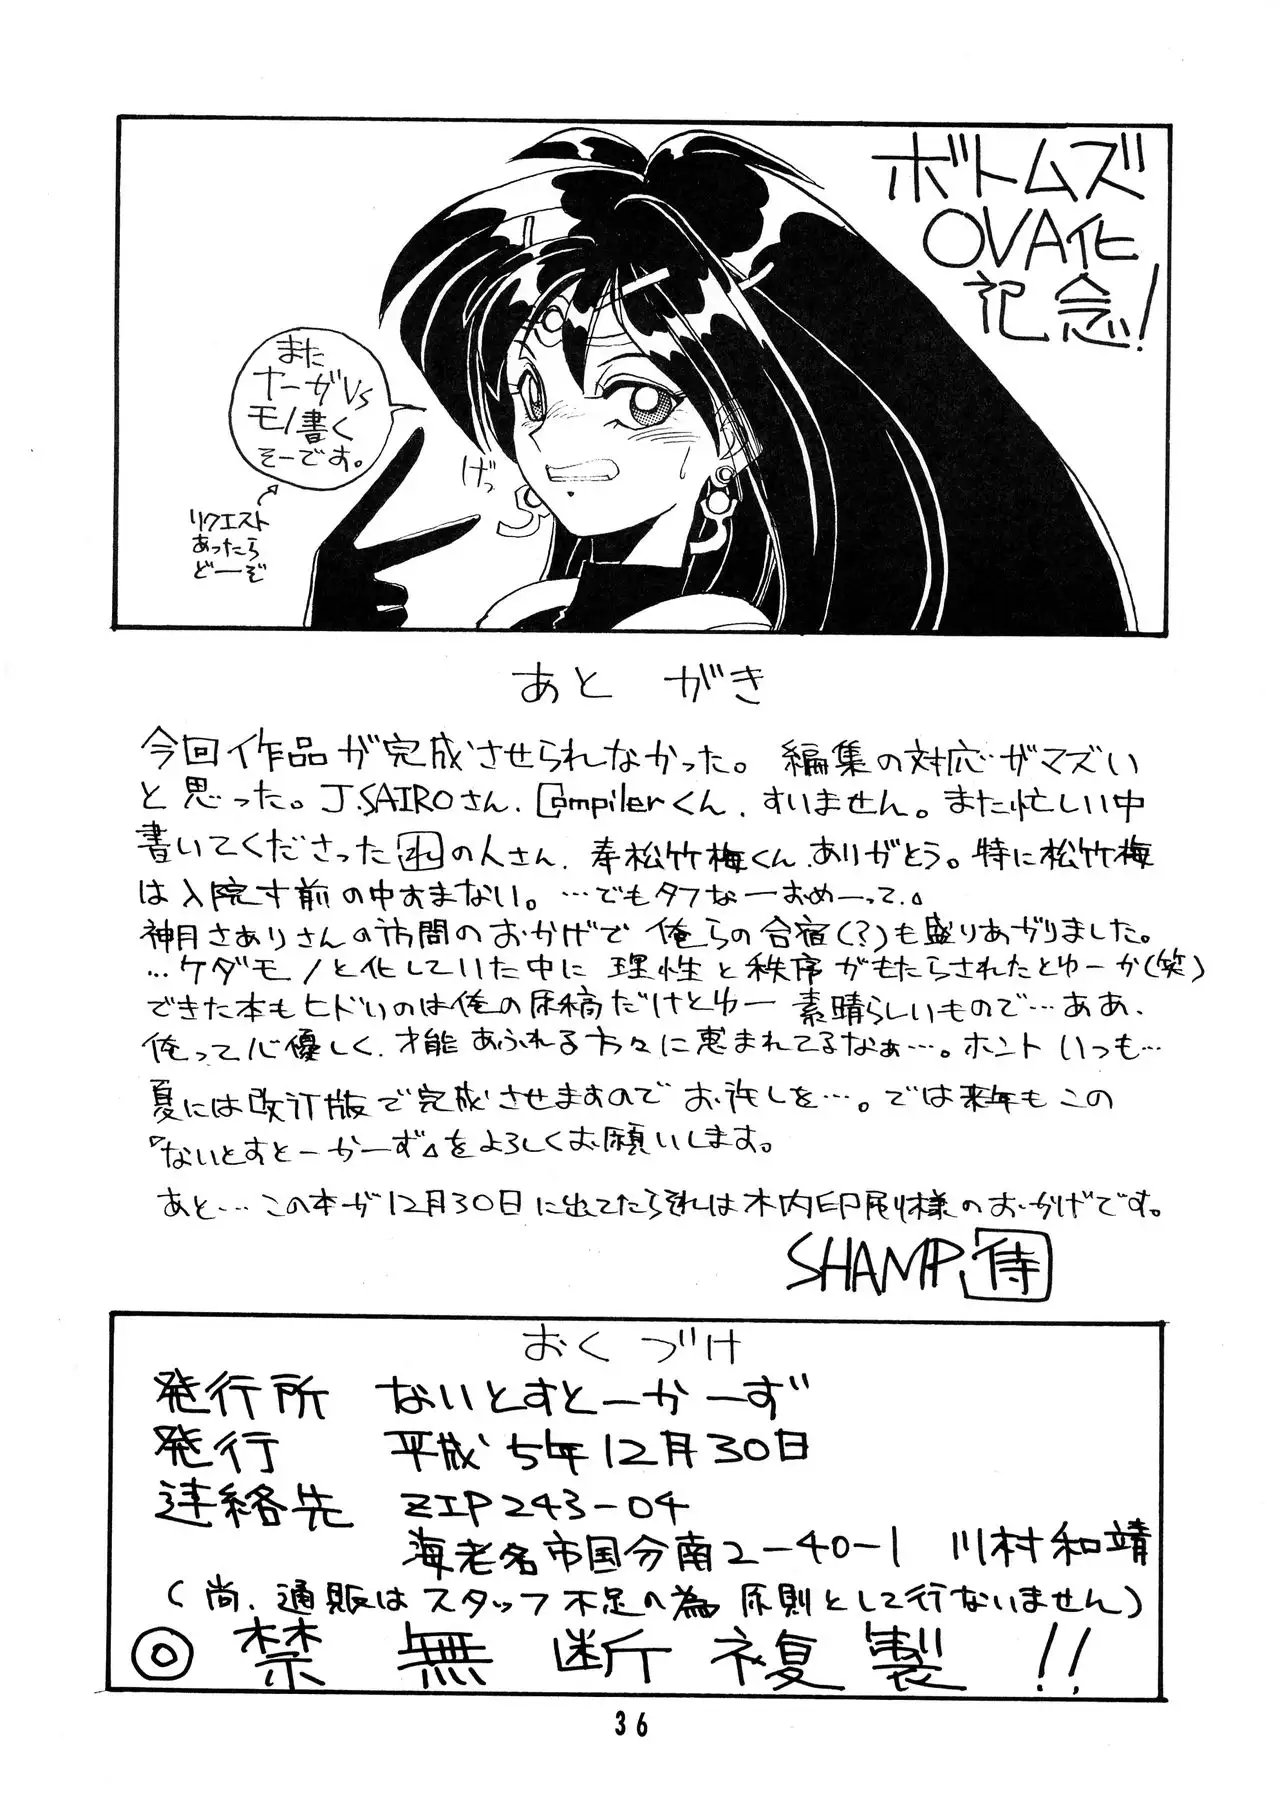 ボトムズ
OVA化
記念!
また
ナーガVS
モノ書く
そーです。
げっ
リクエスト
あったら
どーぞ
あとがき
今回作品が完成させられなかった。編集の対応がマズい
と思った。J.SAIROさん、Compilerくん、すいません。また忙しい中
書いてくださった の人さん、奉松竹梅くん、ありがとう。特に松竹梅
は入院寸前の中すまない。…でもタフなーおめーって。
神月さありさんの訪問のおかげで 俺らの合宿(?)も盛りあがりました。
…ケダモノと化していた中に 理性と秩序がもたらされたとゆーか(笑)
できた本もヒドいのは俺の原稿だけとゆー 素晴らしいもので…ああ、
俺って心優しく、才能あふれる方々に恵まれてるなぁ…。ホント いつも…
夏には改訂版で完成させますのでお許しを…。では来年もこの
『ないとすとーかーず』をよろしくお願いします。
あと…この本が12月30日に出てたらそれは木内印刷様のおかげです。
SHAMP侍
おくづけ
発行所 ないとすとーかーず
発行 平成5年12月30日
連絡先 ZIP243-04
海老名市国分南2-40-1 川村和靖
(尚、通販はスタッフ不足の為 原則として行ないません)
◎禁無断複製!!
36